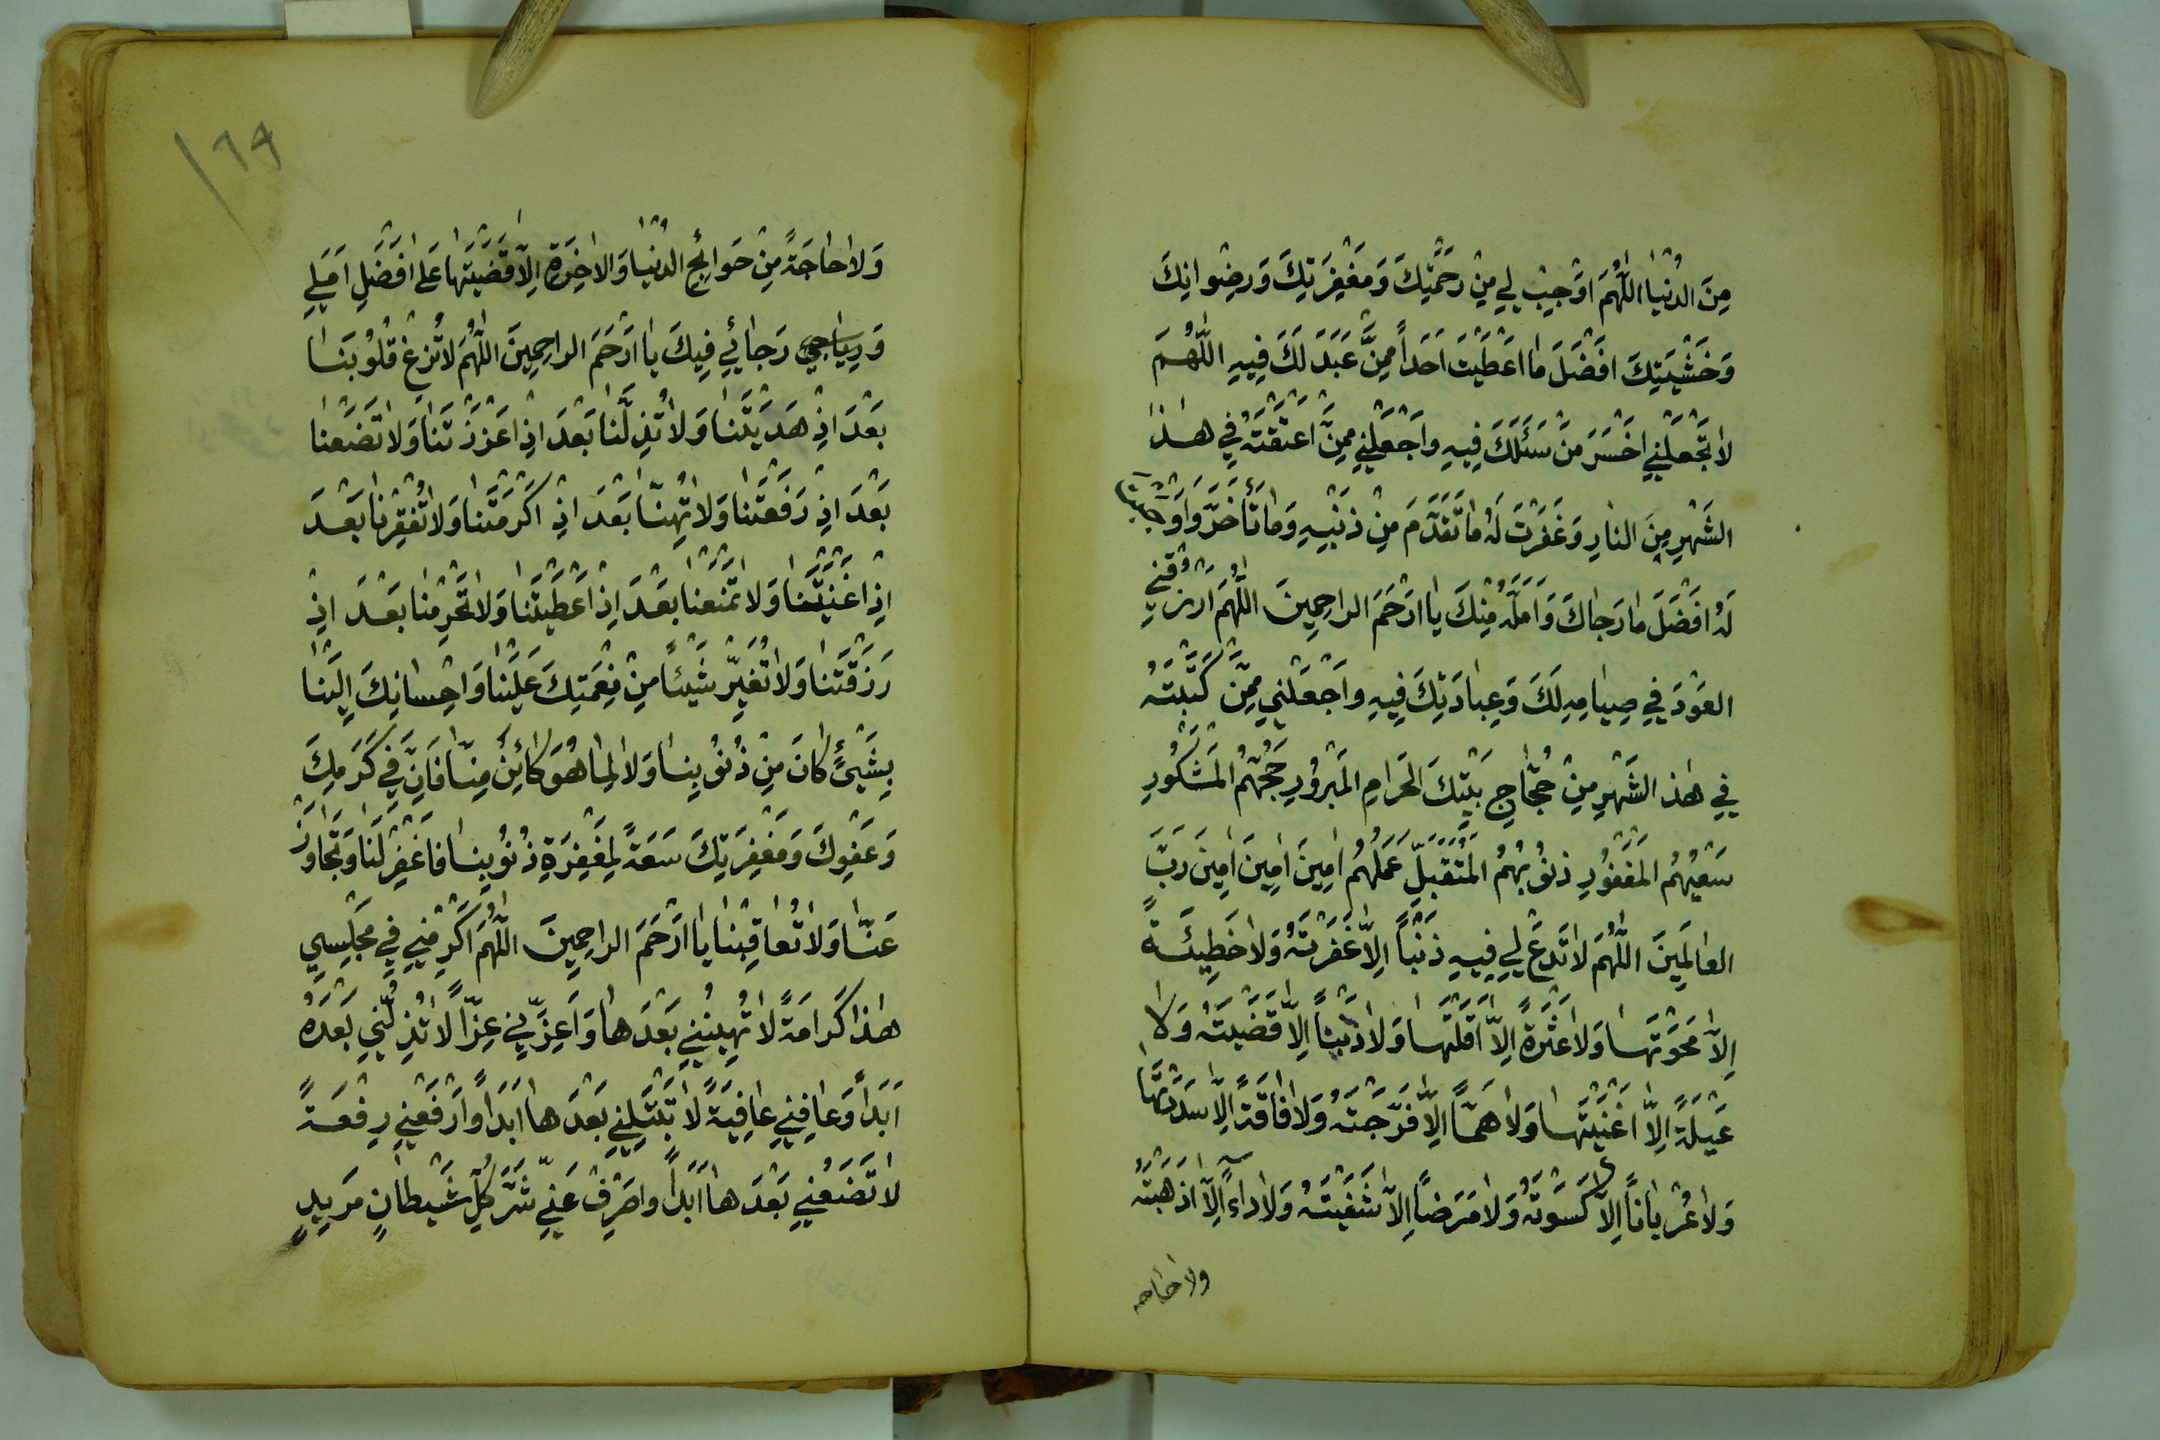 مِنَ الدُّنْيَا اَللّٰهُمَّ اَوْجِبْ لِي مِنْ رَحْمَتِكَ وَمَغْفِرَتِكَ وَرِضْوَانِكَ
وَخَشْيَتِكَ اَفْضَلَ مَا اَعْطَيْتَ اَحَداً مِمَّنْ عَبَدَ لَكَ فِيهِ اللّٰهُمَّ
لَا تَجْعَلْنِي اَخْسَرَ مَنْ سَئَلَكَ فِيهِ وَاجْعَلْنِي مِمَّنْ اَعْتَقْتَهُ فِي هٰذَا
الشَّهْرِ مِنَ النَّارِ وَغَفَرْتَ لَهُ مَا تَقَدَّمَ مِنْ ذَنْبِهِ وَمَا تَأَخَّرَ وَاَوْجَبْتَ
لَهُ اَفْضَلَ مَا رَجَاكَ وَاَمَلَهُ مِنْكَ يَا اَرْحَمَ الرَّاحِمِينَ اللّٰهُمَّ ارْزُقْنِي
العَوْدَ فِي صِيَامِهِ لَكَ وَعِبَادَتِكَ فِيهِ وَاجْعَلْنِي مِمَّنْ كَتَبْتَهُ
فِي هٰذَ الشَّهْرِ مِنْ حُجَّاجِ بَيْتِكَ الْحَرَامِ الْمَبْرُورِ حَجُّهُمُ الْمَشْكُورِ
سَعْيُهُمُ الْمَغْفُورِ ذُنُوبُهُمُ الْمُتَقَبَّلِ عَمَلُهُمْ اٰمِينَ اٰمِينَ اٰمِينَ رَبَّ
العَالَمِينَ اللّٰهُمَّ لَا تَدَعْ لِي فِيهِ ذَنْباً اِلَّا غَفَرْتَهُ وَلَا خَطِيئَةً
اِلَّا مَحَوْتَهَا وَلَا عَثْرَةً اِلَّا اَقَلْتَهَا وَلَا دَيْناً اِلَّا قَضَيْتَهُ وَلَا
عَيْلَةً اِلَّا اَغْنَيْتَهَا وَلَا هَمّاً اِلَّا فَرَّجْتَهُ وَلَا فَاقَةً اِلَّا سَدَدْتَهَا
وَلَا عُرْيَاناً اِلَّا كَسَوْتَهُ وَلَا مَرَضاً اِلَّا شَفَيْتَهُ وَلَا دَاءً اِلَّا اَذْهَبْتَهُ
ولا حاجه
١٦٩
وَلَا حَاجَةً مِنْ حَوَائِجِ الدُّنْيَا وَالْاٰخِرَةِ اِلَّا قَضَيْتَهَا عَلَى اَفْضَلِ اَمَلِي
وَ رَجَائِي فِيكَ يَا اَرْحَمَ الرَّاحِمِينَ اللّٰهُمَّ لَا تُزِغْ قُلُوبَنَا
بَعْدَ اِذْ هَدَيْتَنَا وَلَا تُذِلَّنَا بَعْدَ اِذْ اَعْزَزْتَنَا وَلَا تَضَعْنَا
بَعْدَ اِذْ رَفَعْتَنَا وَلَا تُهِنَّا بَعْدَ اِذْ اَكْرَمْتَنَا وَلَا تُفْقِرْنَا بَعْدَ
اِذْ اَغْنَيْتَنَا وَلَا تَمْنَعْنَا بَعْدَ اِذْ اَعْطَيْتَنَا وَلَا تَحْرِمْنَا بَعْدَ اِذْ
رَزَقْتَنَا وَلَا تُغَيِّرْ شَيْئاً مِنْ نِعْمَتِكَ عَلَيْنَا وَاِحْسَانِكَ اِلَيْنَا
بِشَيْئٍ كَانَ مِنْ ذُنُوبِنَا وَلَا لِمَا هُوَ كَائِنٌ مِنَّا فَاِنَّ فِي كَرَمِكَ
وَعَفْوِكَ وَمَغْفِرَتِكَ سَعَةً لِمَغْفِرَةِ ذُنُوبِنَا فَاغْفِرْ لَنَا وَتَجَاوَزْ
عَنَّا وَلَا تُعَاقِبْنَا يَا اَرْحَمَ الرَّاحِمِينَ اللّٰهُمَّ اَكْرِمْنِي فِي مَجْلِسِي
هٰذَا كَرَامَةً لَا تُهِينُنِي بَعْدَهَا وَاَعِزَّنِي عِزّاً لَا تُذِلُّنِي بَعْدَهُ
اَبَداً وَعَافِنِي عَافِيَةً لَا تَبْتَلِينِي بَعْدَهَا اَبَداً وَارْفَعْنِي رِفْعَةً
لَا تَضَعُنِي بَعْدَهَا اَبَداً وَاصْرِفْ عَنِّي شَرَّ كُلِّ شَيْطَانٍ مَرِيدٍ